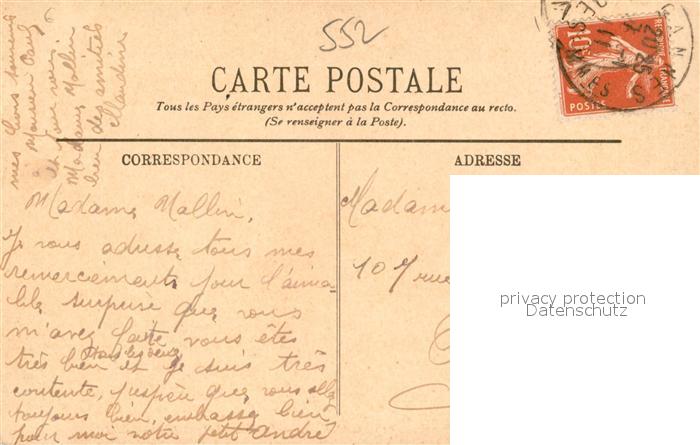 552
CARTE POSTALE
Tous les Pays étrangers n'acceptent pas la Correspondance au recto.
(Se renseigner à la Poste).
CORRESPONDANCE
ADRESSE
Madame Mallini,
Je vous adresse tous mes
remerciements pour l'aima-
ble surprise que vous
m'avez faite vous êtes
très bien tous les deux et je suis très
contente, j'espère que vous allez
toujours bien, embrassez bien
pour moi votre petit André
mes bons
Monsieur
et pour vous
Madame Mallini
bien des amitiés
Claudine
Madam
107 rue
REPUBLIQUE FRANÇAISE
10
POSTES
CANNES
privacy protection
Datenschutz